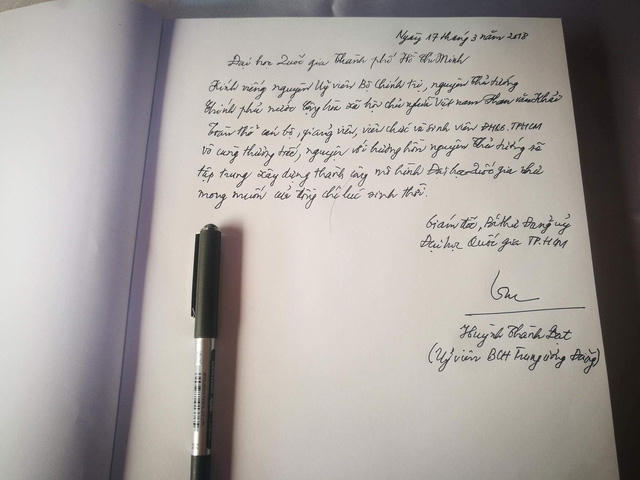 Ngày 17 tháng 3 năm 2018
Đại học Quốc gia Thành phố Hồ Chí Minh
Kính viếng nguyên Uỷ viên Bộ Chính trị, nguyên Thủ tướng
Chính phủ nước Cộng hòa xã hội chủ nghĩa Việt Nam Phan Văn Khải
Toàn thể cán bộ, giảng viên, viên chức và sinh viên ĐHQG.TPHCM
vô cùng thương tiếc, nguyện với hương hồn nguyên Thủ tướng sẽ
tập trung xây dựng thành công mô hình Đại học Quốc gia như
mong muốn của đồng chí lúc sinh thời.
Giám đốc, Bí thư Đảng ủy
Đại học Quốc gia TP.HCM
Huỳnh Thành Đạt
(Uỷ viên BCH Trung ương Đảng)